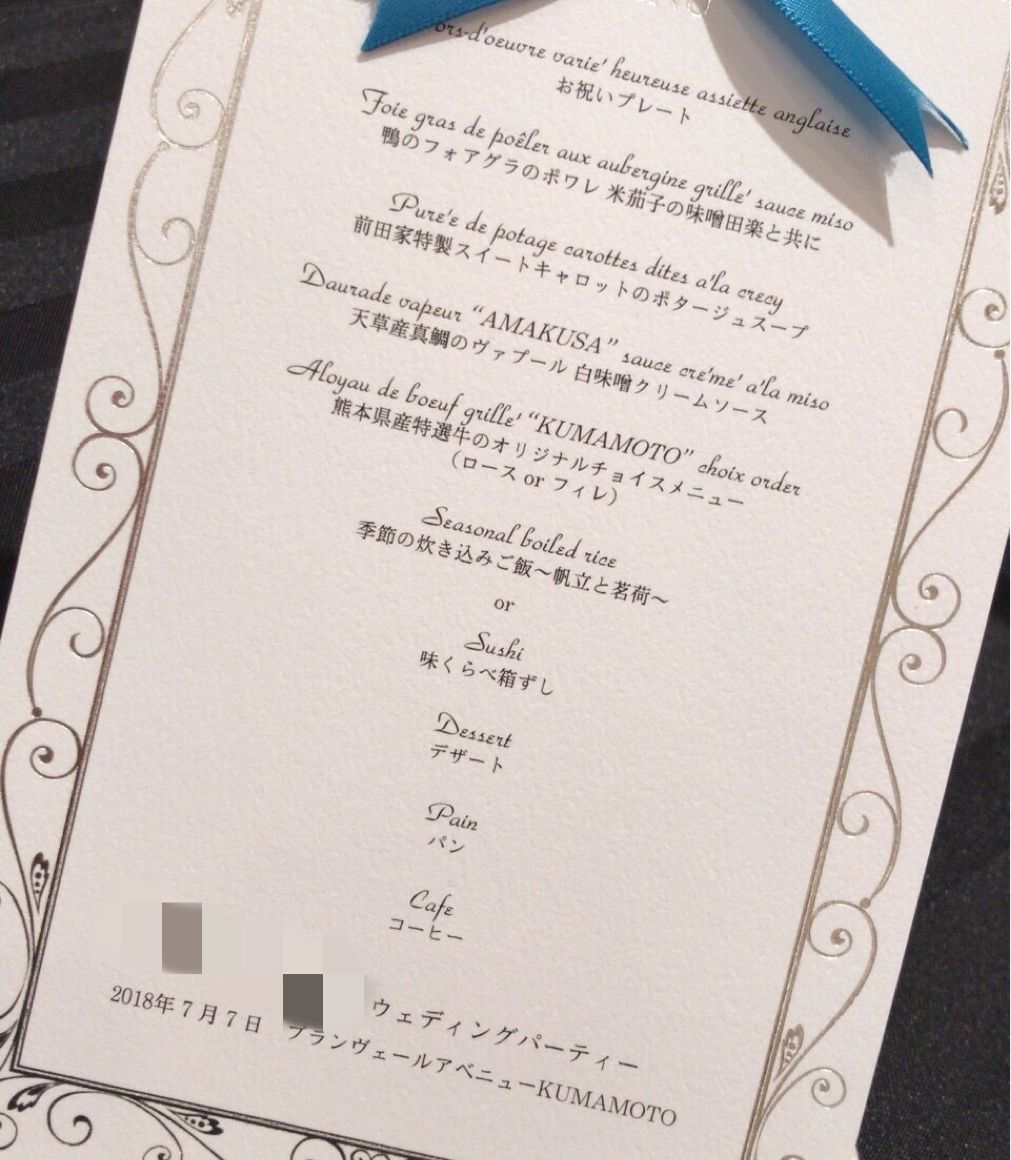 ors-d'oeuvre varie' heureuse assiette anglaise
お祝いプレート
Foie gras de poêler aux aubergine grille' sauce miso
鴨のフォアグラのポワレ 米茄子の味噌田楽と共に
Pure'e de potage carottes dites a'la crecy
前田家特製スイートキャロットのポタージュスープ
Daurade vapeur “AMAKUSA” sauce cre'me' a'la miso
天草産真鯛のヴァプール 白味噌クリームソース
Aloyau de boeuf grille' “KUMAMOTO” choix order
熊本県産特選牛のオリジナルチョイスメニュー
（ロース or フィレ）
Seasonal boiled rice
季節の炊き込みご飯～帆立と茗荷～
or
Sushi
味くらべ箱ずし
Dessert
デザート
Pain
パン
Cafe
コーヒー
ウェディングパーティー
2018年７月７日 ブランヴェールアベニューKUMAMOTO